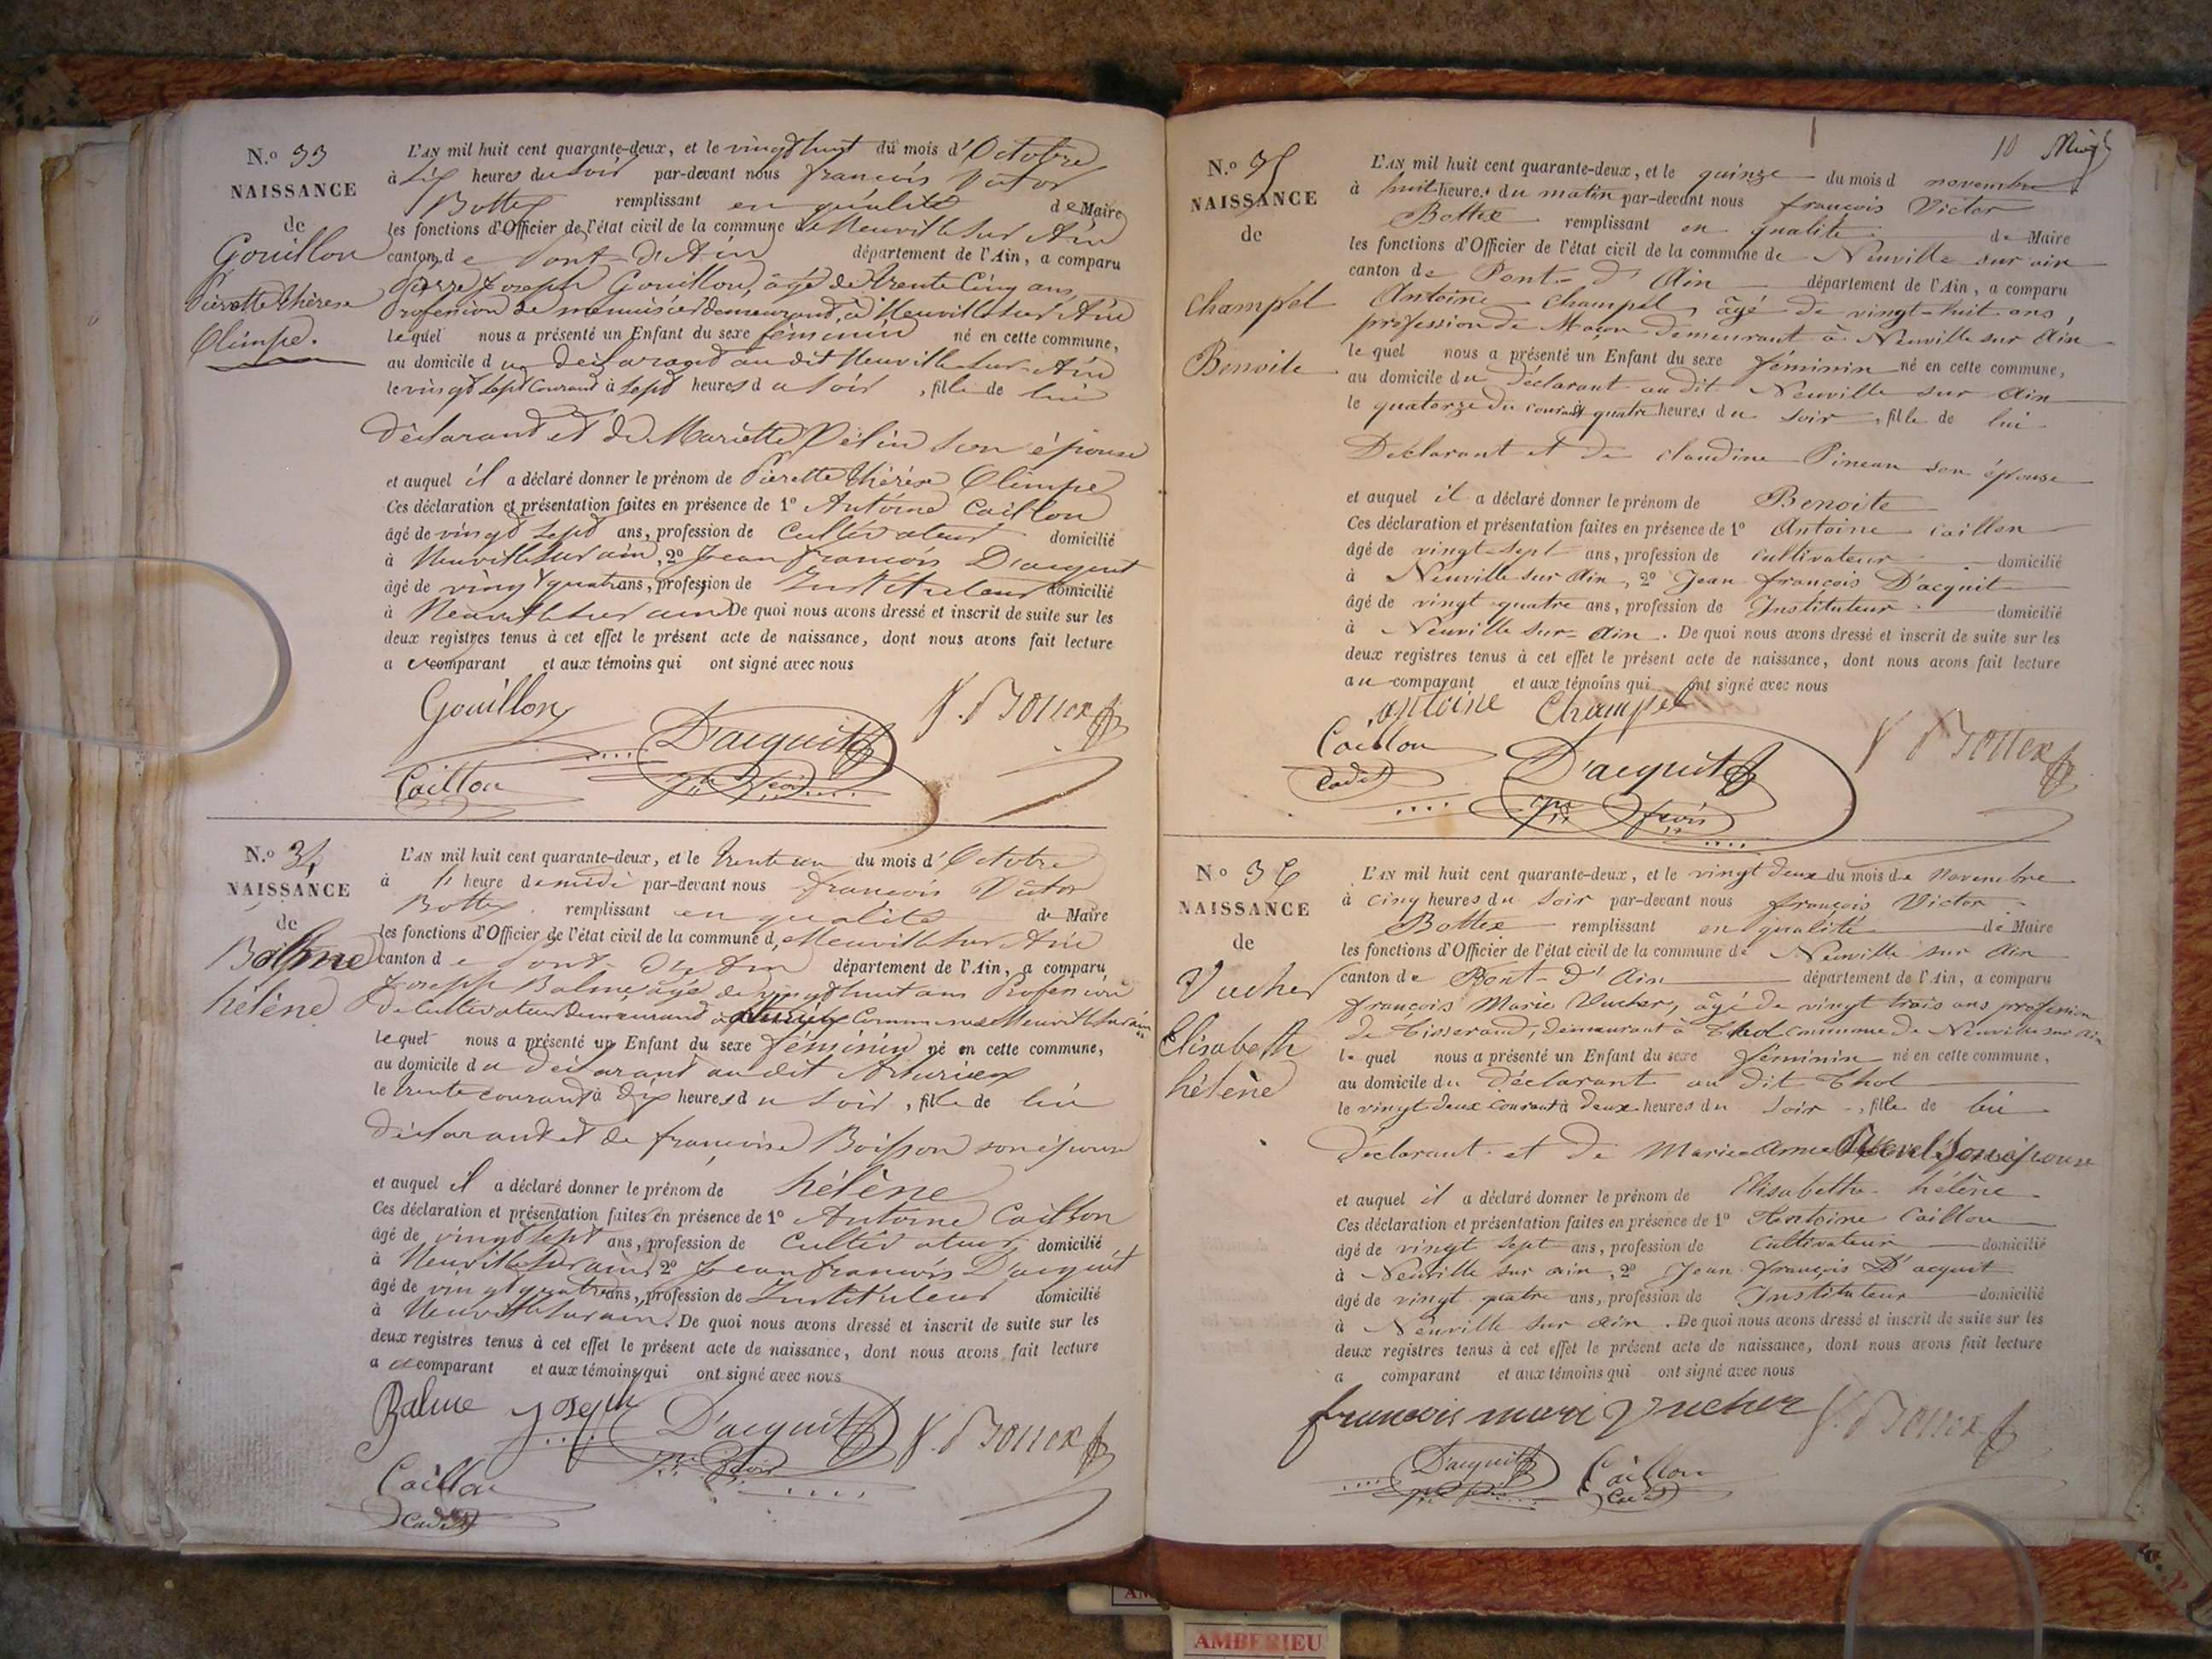 N.o 33
NAISSANCE
de
Gouillon
Pierrette thérèse
Olimpe.
L'AN mil huit cent quarante-deux, et le vingt huit du mois d'Octobre
à six heures du soir par-devant nous françois Victor
Bottex remplissant en qualité de Maire
les fonctions d'Officier de l'état civil de la commune de Neuville sur Ain
canton de Pont-d'Ain département de l'Ain, a comparu
Pierre Joseph Gouillon, âgé de trente cinq ans,
Profession de menuisier demeurant, à Neuville sur Ain
lequel nous a présenté un Enfant du sexe féminin né en cette commune,
au domicile du déclarant au dit Neuville sur Ain
le vingt sept courant à sept heures du soir, fille de lui
déclarant et de Mariette son épouse
et auquel il a déclaré donner le prénom de Pierette thérèse Olimpe
Ces déclaration et présentation faites en présence de 1o Antoine Caillou
âgé de vingt sept ans, profession de Cultivateur domicilié
à Neuville sur ain, 2o Jean françois D'acquit
âgé de vingt quatre ans, profession de Instituteur domicilié
à Neuville sur ain De quoi nous avons dressé et inscrit de suite sur les
deux registres tenus à cet effet le présent acte de naissance, dont nous avons fait lecture
au comparant et aux témoins qui ont signé avec nous
Gouillon
D'acquit
V. Bottex
Caillou
N.o 34
NAISSANCE
de
Balme
hélène
L'AN mil huit cent quarante-deux, et le trente un du mois d'Octobre
à heure de midi par-devant nous françois Victor
Bottex remplissant en qualité de Maire
les fonctions d'Officier de l'état civil de la commune d, Neuville sur Ain
canton de Pont-d'Ain département de l'Ain, a comparu
Joseph Balme, âgé de vingt huit ans Profession
de Cultivateur demeurant à Commune de Neuville sur ain
lequel nous a présenté un Enfant du sexe féminin né en cette commune,
au domicile du déclarant au dit
le trente courant à dix heures du soir, fille de lui
déclarant et de françoise Boisson son épouse
et auquel il a déclaré donner le prénom de hélène
Ces déclaration et présentation faites en présence de 1o Antoine Caillou
âgé de vingt sept ans, profession de Cultivateur domicilié
à Neuville sur ain, 2o Jean françois D'acquit
âgé de vingt quatre ans, profession de Instituteur domicilié
à Neuville sur ain. De quoi nous avons dressé et inscrit de suite sur les
deux registres tenus à cet effet le présent acte de naissance, dont nous avons fait lecture
au comparant et aux témoins qui ont signé avec nous
Balme joseph D'acquit V. Bottex
Caillou
Cadet
10
N.o 35
NAISSANCE
de
Champel
Benoite
L'AN mil huit cent quarante-deux, et le quinze du mois d novembre
à huit heures du matin par-devant nous françois Victor
Bottex remplissant en qualité de Maire
les fonctions d'Officier de l'état civil de la commune de Neuville sur ain
canton de Pont-d'Ain département de l'Ain, a comparu
Antoine Champel, âgé de vingt-huit ans,
profession de Maçon demeurant à Neuville sur Ain
lequel nous a présenté un Enfant du sexe féminin né en cette commune,
au domicile du Déclarant au dit Neuville sur Ain
le quatorze du courant à quatre heures du soir, fille de lui
Déclarant et de Claudine Pineau son épouse
et auquel il a déclaré donner le prénom de Benoite
Ces déclaration et présentation faites en présence de 1o Antoine Caillou
âgé de vingt-sept ans, profession de cultivateur domicilié
à Neuville sur Ain, 2o Jean françois D'acquit
âgé de vingt quatre ans, profession de Instituteur domicilié
à Neuville sur-Ain. De quoi nous avons dressé et inscrit de suite sur les
deux registres tenus à cet effet le présent acte de naissance, dont nous avons fait lecture
au comparant et aux témoins qui ont signé avec nous
Antoine Champel
Caillou
Cadet
D'acquit
V. Bottex
jn frois
No 36
NAISSANCE
de
Vucher
Elisabeth
hélène
L'AN mil huit cent quarante-deux, et le vingt deux du mois de Novembre
à cinq heures du soir par-devant nous françois Victor
Bottex remplissant en qualité de Maire
les fonctions d'Officier de l'état civil de la commune de Neuville sur Ain
canton de Pont-d'Ain département de l'Ain, a comparu
françois Marie Vucher, âgé de vingt trois ans profession
de Tisserand, demeurant à Thol commune de Neuville sur Ain
lequel nous a présenté un Enfant du sexe féminin né en cette commune,
au domicile du Déclarant au dit Thol
le vingt-deux courant à deux heures du soir, fille de lui
déclarant et de Marie Anne son épouse
et auquel il a déclaré donner le prénom de Elisabeth hélène
Ces déclaration et présentation faites en présence de 1o Antoine Caillou
âgé de vingt sept ans, profession de Cultivateur domicilié
à Neuville sur ain, 2o Jean françois D'acquit
âgé de vingt quatre ans, profession de Instituteur domicilié
à Neuville sur Ain. De quoi nous avons dressé et inscrit de suite sur les
deux registres tenus à cet effet le présent acte de naissance, dont nous avons fait lecture
a comparant et aux témoins qui ont signé avec nous
francois mari Vucher V. Bottex
D'acquit Caillou
Cadet
AMBERIEU